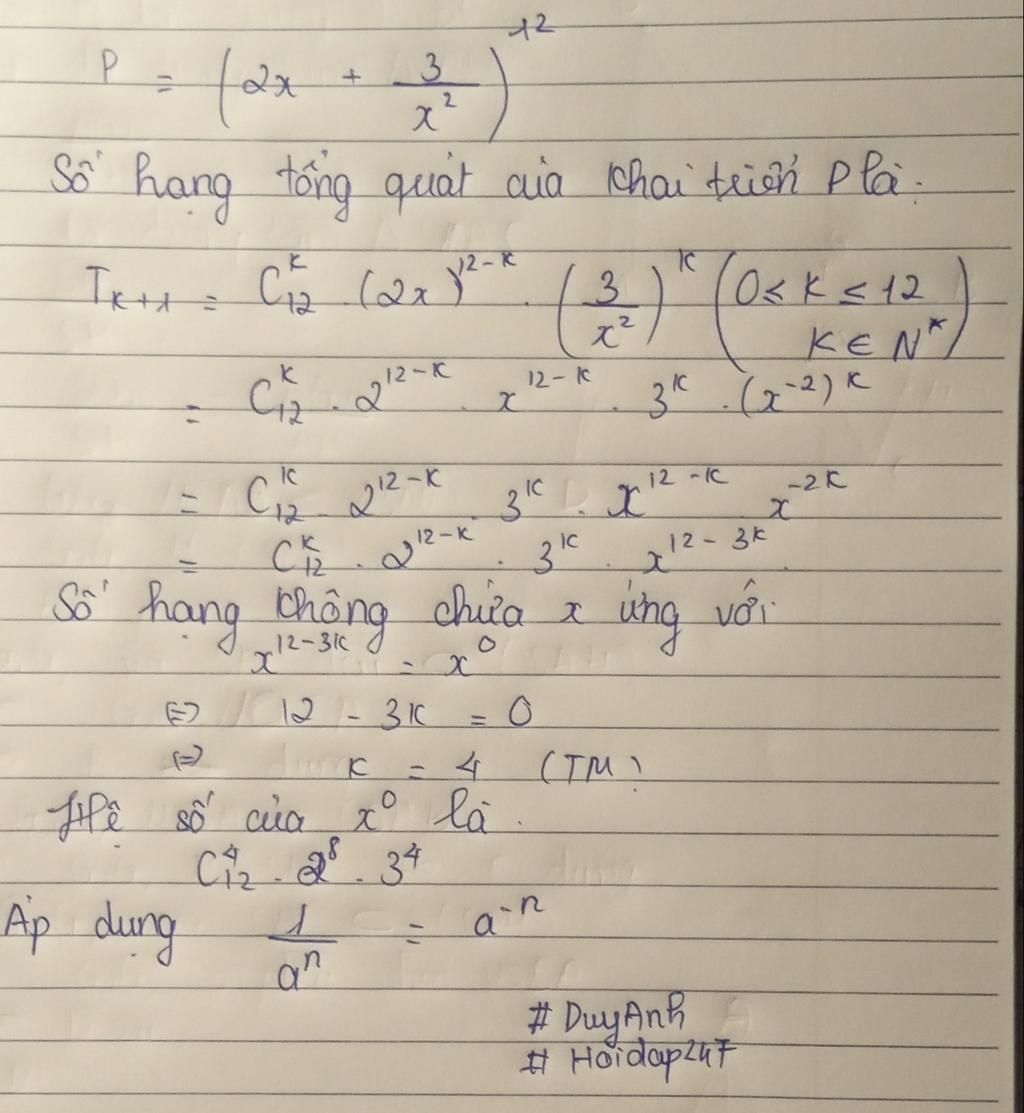 P = (2x + 3/x²)¹²
Số hạng tổng quát của khai triển P là:
Tₖ₊₁ = C₁₂ᵏ . (2x)¹²⁻ᵏ . (3/x²)ᵏ (0 ≤ k ≤ 12
k ∈ N*)
= C₁₂ᵏ . 2¹²⁻ᵏ . x¹²⁻ᵏ . 3ᵏ . (x⁻²)ᵏ
= C₁₂ᵏ . 2¹²⁻ᵏ . 3ᵏ . x¹²⁻ᵏ x⁻²ᵏ
= C₁₂ᵏ . 2¹²⁻ᵏ . 3ᵏ . x¹²⁻³ᵏ.
Số hạng không chứa x ứng với
x¹²⁻³ᵏ = x⁰
⇔ 12 - 3k = 0
⇔ k = 4 (TM)
Hệ số của x⁰ là.
C₁₂⁴ . 2⁸ . 3⁴
Áp dụng 1/aⁿ = a⁻ⁿ
# DuyAnh
# Hoidap247